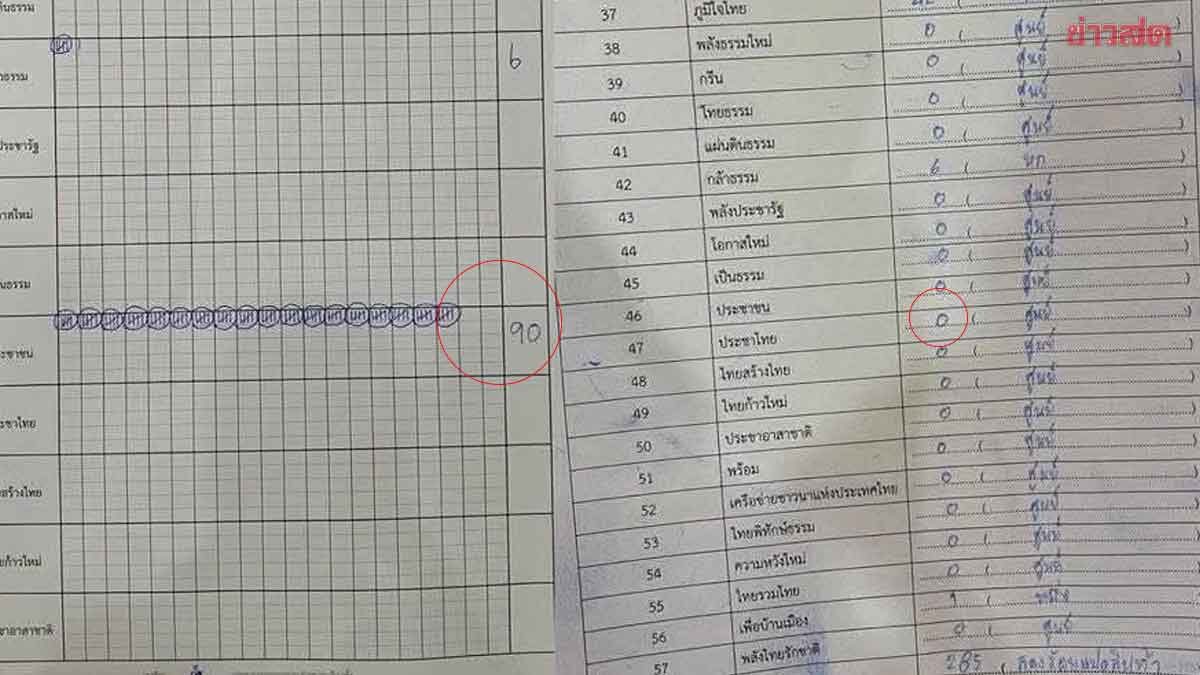 ดินธรรม
าธรรม 6
ประชารัฐ
าสใหม่
นธรรม
ะชาชน 90
ะชาไทย
สร้างไทย
ยก้าวใหม่
ะชาอาสาชาติ
ข่าวสด
37 ภูมิใจไทย
38 พลังธรรมใหม่ 0 ( ศูนย์
39 กรีน 0 ( ศูนย์ )
40 ไทยธรรม 0 ( ศูนย์ )
41 แผ่นดินธรรม 0 ( ศูนย์ )
42 กล้าธรรม 6 ( หก )
43 พลังประชารัฐ 0 ( ศูนย์ )
44 โอกาสใหม่ 0 ( ศูนย์ )
45 เป็นธรรม 0 ( ศูนย์ )
46 ประชาชน 0 ( ศูนย์ )
47 ประชาไทย 0 ( ศูนย์ )
48 ไทยสร้างไทย 0 ( ศูนย์ )
49 ไทยก้าวใหม่ 0 ( ศูนย์ )
50 ประชาอาสาชาติ 0 ( ศูนย์ )
51 พร้อม 0 ( ศูนย์ )
52 เครือข่ายชาวนาแห่งประเทศไทย 0 ( ศูนย์ )
53 ไทยพิทักษ์ธรรม 0 ( ศูนย์ )
54 ความหวังใหม่ 0 ( ศูนย์ )
55 ไทยรวมไทย 0 ( ศูนย์ )
56 เพื่อบ้านเมือง 1 ( หนึ่ง )
57 พลังไทยรักชาติ 0 ( ศูนย์ )
285 ( สองร้อยแปดสิบห้า